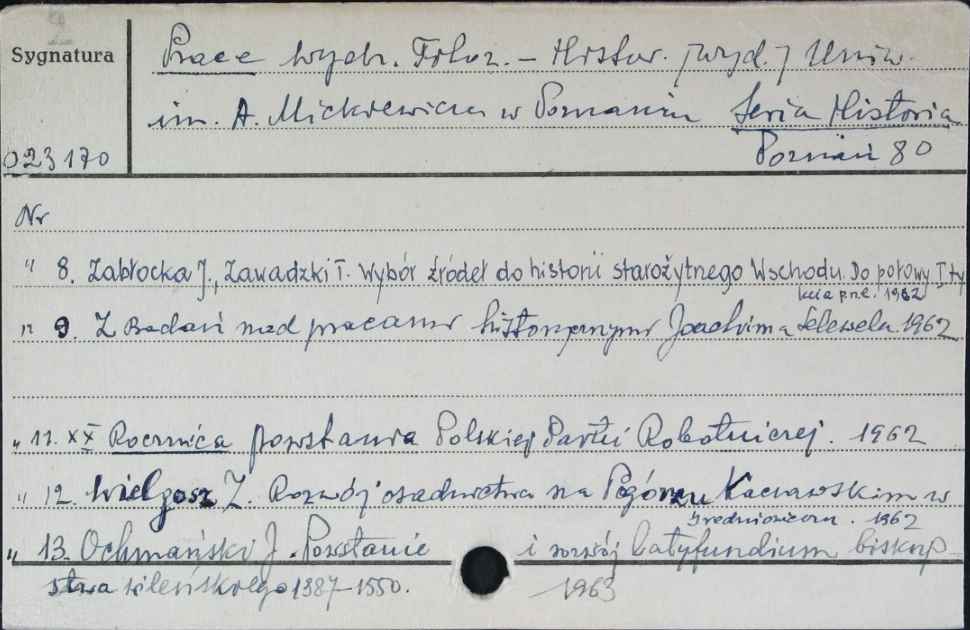 2
Sygnatura
Prace Wydz. Filoz. - Histor. [wyd.] Uniw.
im. A. Mickiewicza w Poznaniu Seria Historia
023170
Poznań 80
Nr
" 8. Zabłocka J., Zawadzki T. Wybór źródeł do historii starożytnego Wschodu. Do połowy I ty
lecia p.n.e. 1962
" 9. Z Badań nad pracami historycznymi Joachima Lelewela. 1962
" 11. XX Rocznica powstania Polskiej Partii Robotniczej. 1962
" 12. Wielgosz Z. Rozwój osadnictwa na Pogórzu Kaczawskim w
średniowieczu. 1962
" 13. Ochmański J. Powstanie i rozwój latyfundium biskup-
stwa wileńskiego 1387-1550. 1963